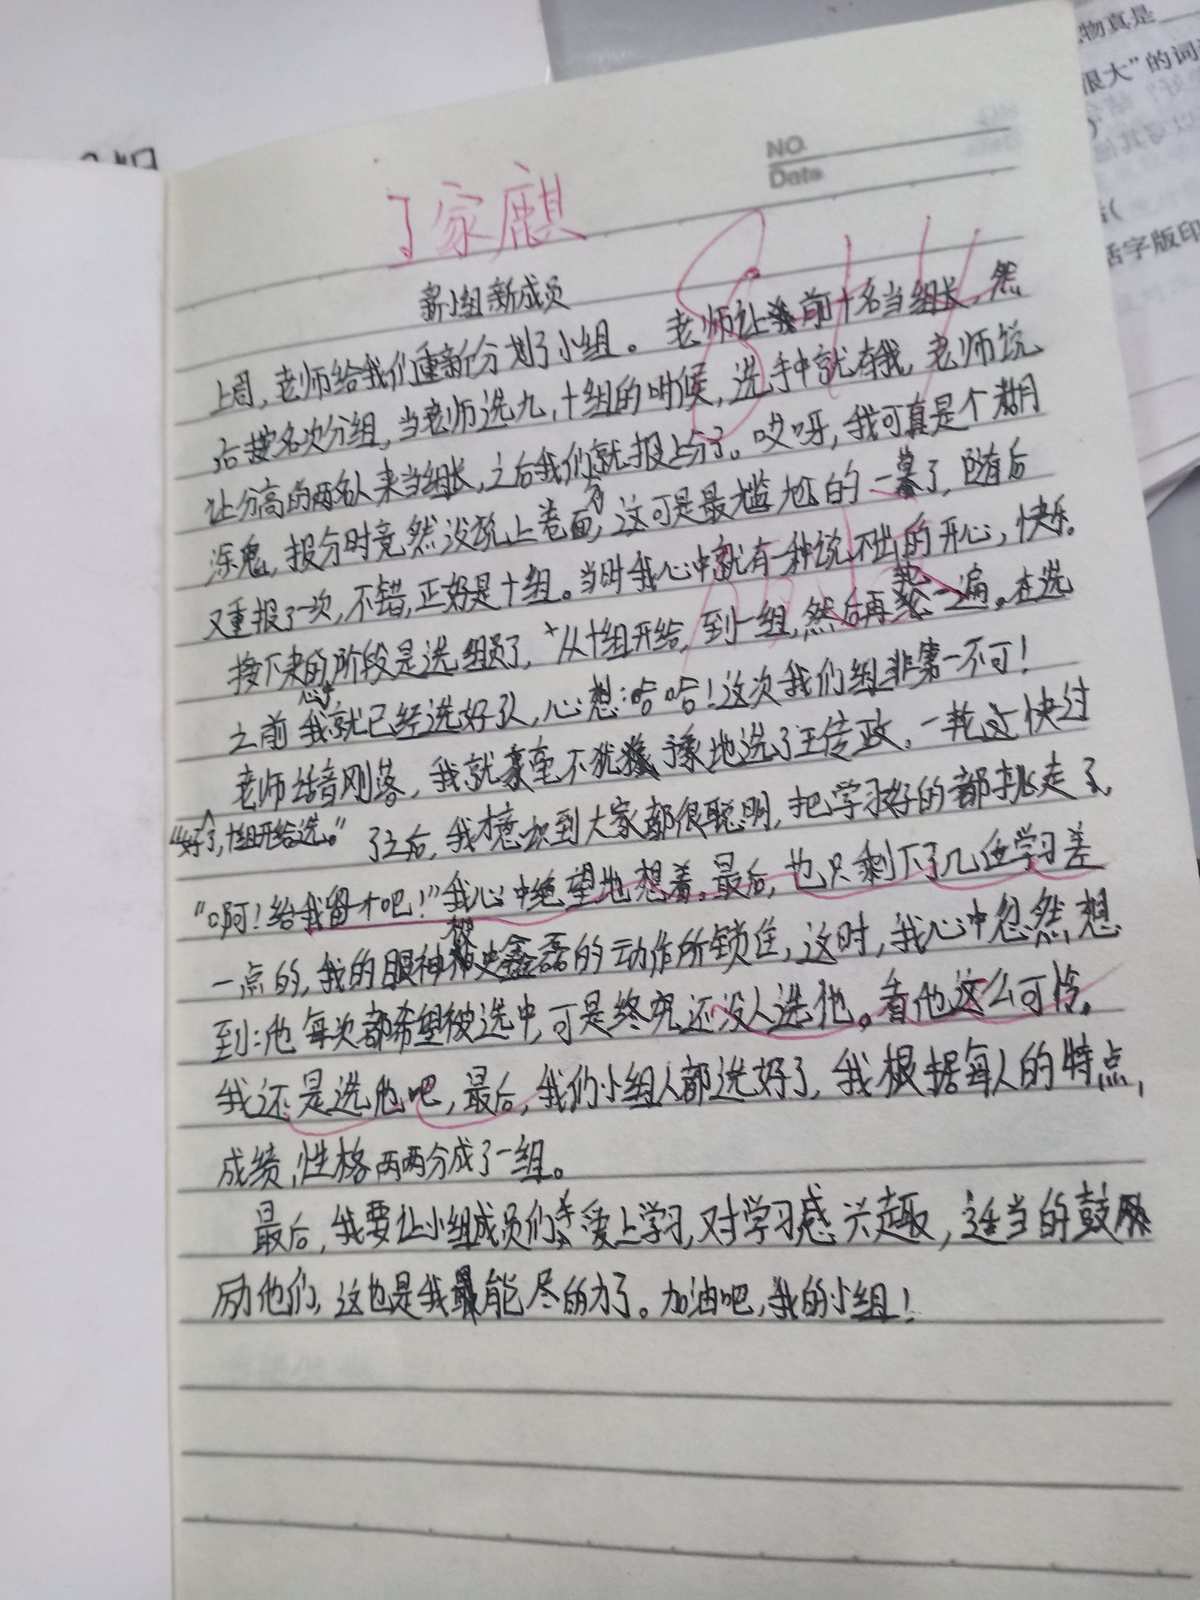 物真是
很大”的词
活字版印
NO.
Date
丁家麒
新小组新成员
上周,老师给我们重新分划了小组。老师让前十名当组长,然
后按名次分组,当老师选九,十组的时候,选手中就有我,老师说
让分高的两名人来当组长,之后我们就报上分了。哎呀,我可真是个糊
涂鬼,报分时竟然没说上卷面分,这可是最尴尬的一幕了,随后
又重报了一次,不错,正好是十组。当时我心中就有一种说不出的开心,快乐。
接下来的阶段是选组员了,从十组开给,到一组,然后再轮一遍。在选
之前我心中就已经选好了人,心想:哈哈!这次我们组非第一不可!
“好了,十组开给选。”
老师话音刚落,我就毫不犹豫地选了王传政,一轮这快过
了之后,我才意识到大家都很聪明,把学习好的都挑走了,
“啊!给我留个吧!”我心中绝望地想着。最后,也只剩下了几位学习差
一点的,我的眼神被史鑫磊的动作所锁住,这时,我心中忽然想
到:他每次都希望被选中,可是终究还没人选他。看他这么可怜。
我还是选他吧,最后,我们小组人都选好了,我根据每人的特点,
成绩,性格两两分成了一组。
最后,我要让小组成员们去爱上学习,对学习感兴趣,适当的鼓
励他们,这也是我最能尽的力了。加油吧,我的小组!